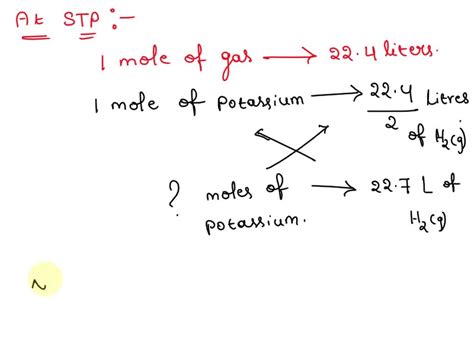 At STP :-
1 mole of gas → 22.4 liters.
1 mole of Potassium → 22.4/2 Litres of H₂(g)
? moles of potassium. → 22.7 L of H₂(g)
N